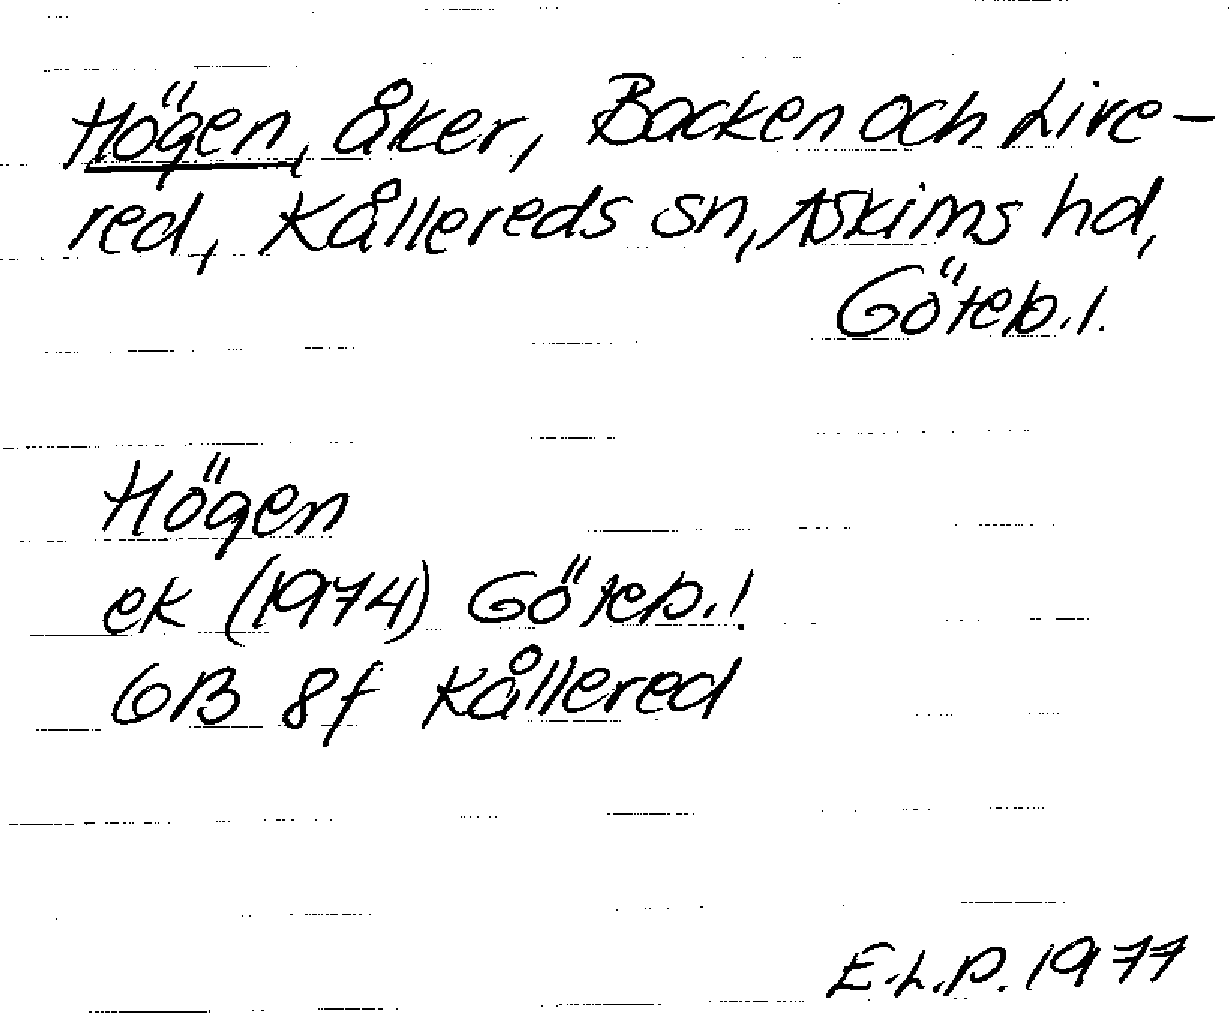 Högen, åker, Backen och Live-
red, Kållereds sn, Askims hd,
Göteb. l.
Högen
ek (1974) Göteb. l.
6B 8f Kållered
E.L.P. 1977